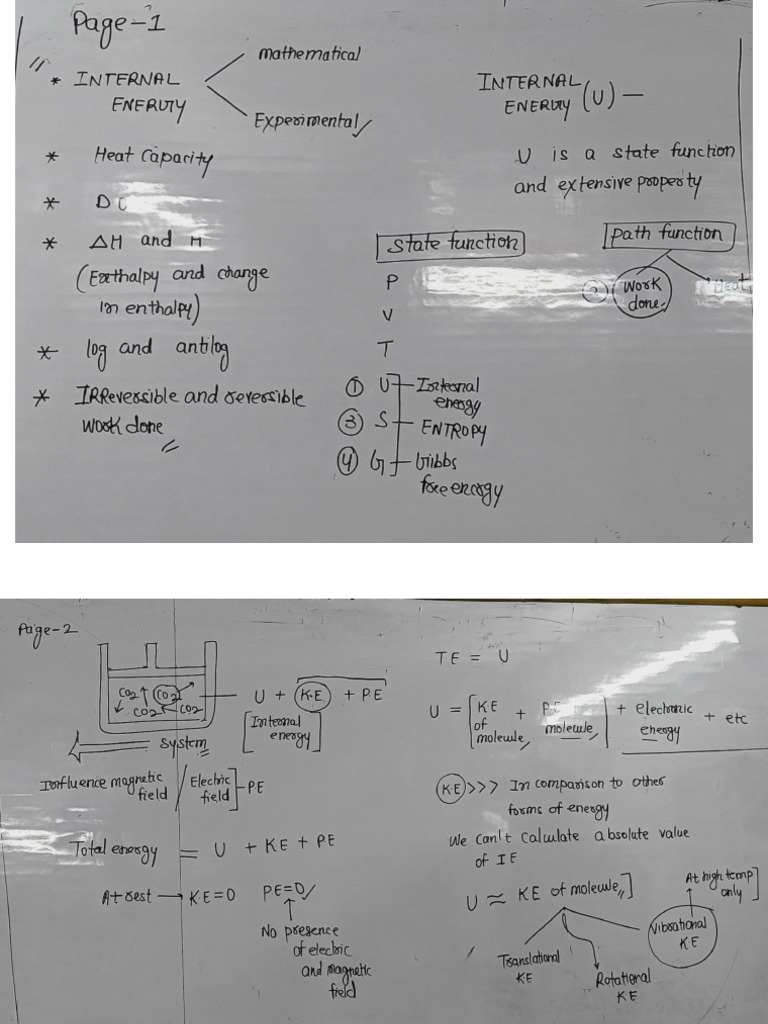 Page-1
* INTERNAL ENERGY
mathematical
Experimental ✓
* Heat Capacity
* DC
* ΔH and H
(Enthalpy and change
in enthalpy)
* log and antilog
* IRReversible and reversible
work done
INTERNAL
ENERGY (U) —
U is a state function
and extensive property
State function
P
V
T
① U – Internal
energy
③ S – ENTROPY
④ G – Gibbs
free energy
Path function
② Work
done
Heat
Page-2
CO2 CO2
CO2 CO2
System
U + K.E + P.E
[Internal
energy]
Influence magnetic
field / Electric
field] - PE
Total energy = U + KE + PE
At rest → K.E=0 PE=0 ✓
No presence
of electric
and magnetic
field
TE = U
U = [K.E of molecule, + P.E molecule,] + electronic energy + etc
K.E >>> In comparison to other
forms of energy
We can't calculate absolute value
of IE
U ≈ KE of molecule,,]
Translational
KE
Rotational
KE
Vibrational
KE
At high temp
only]